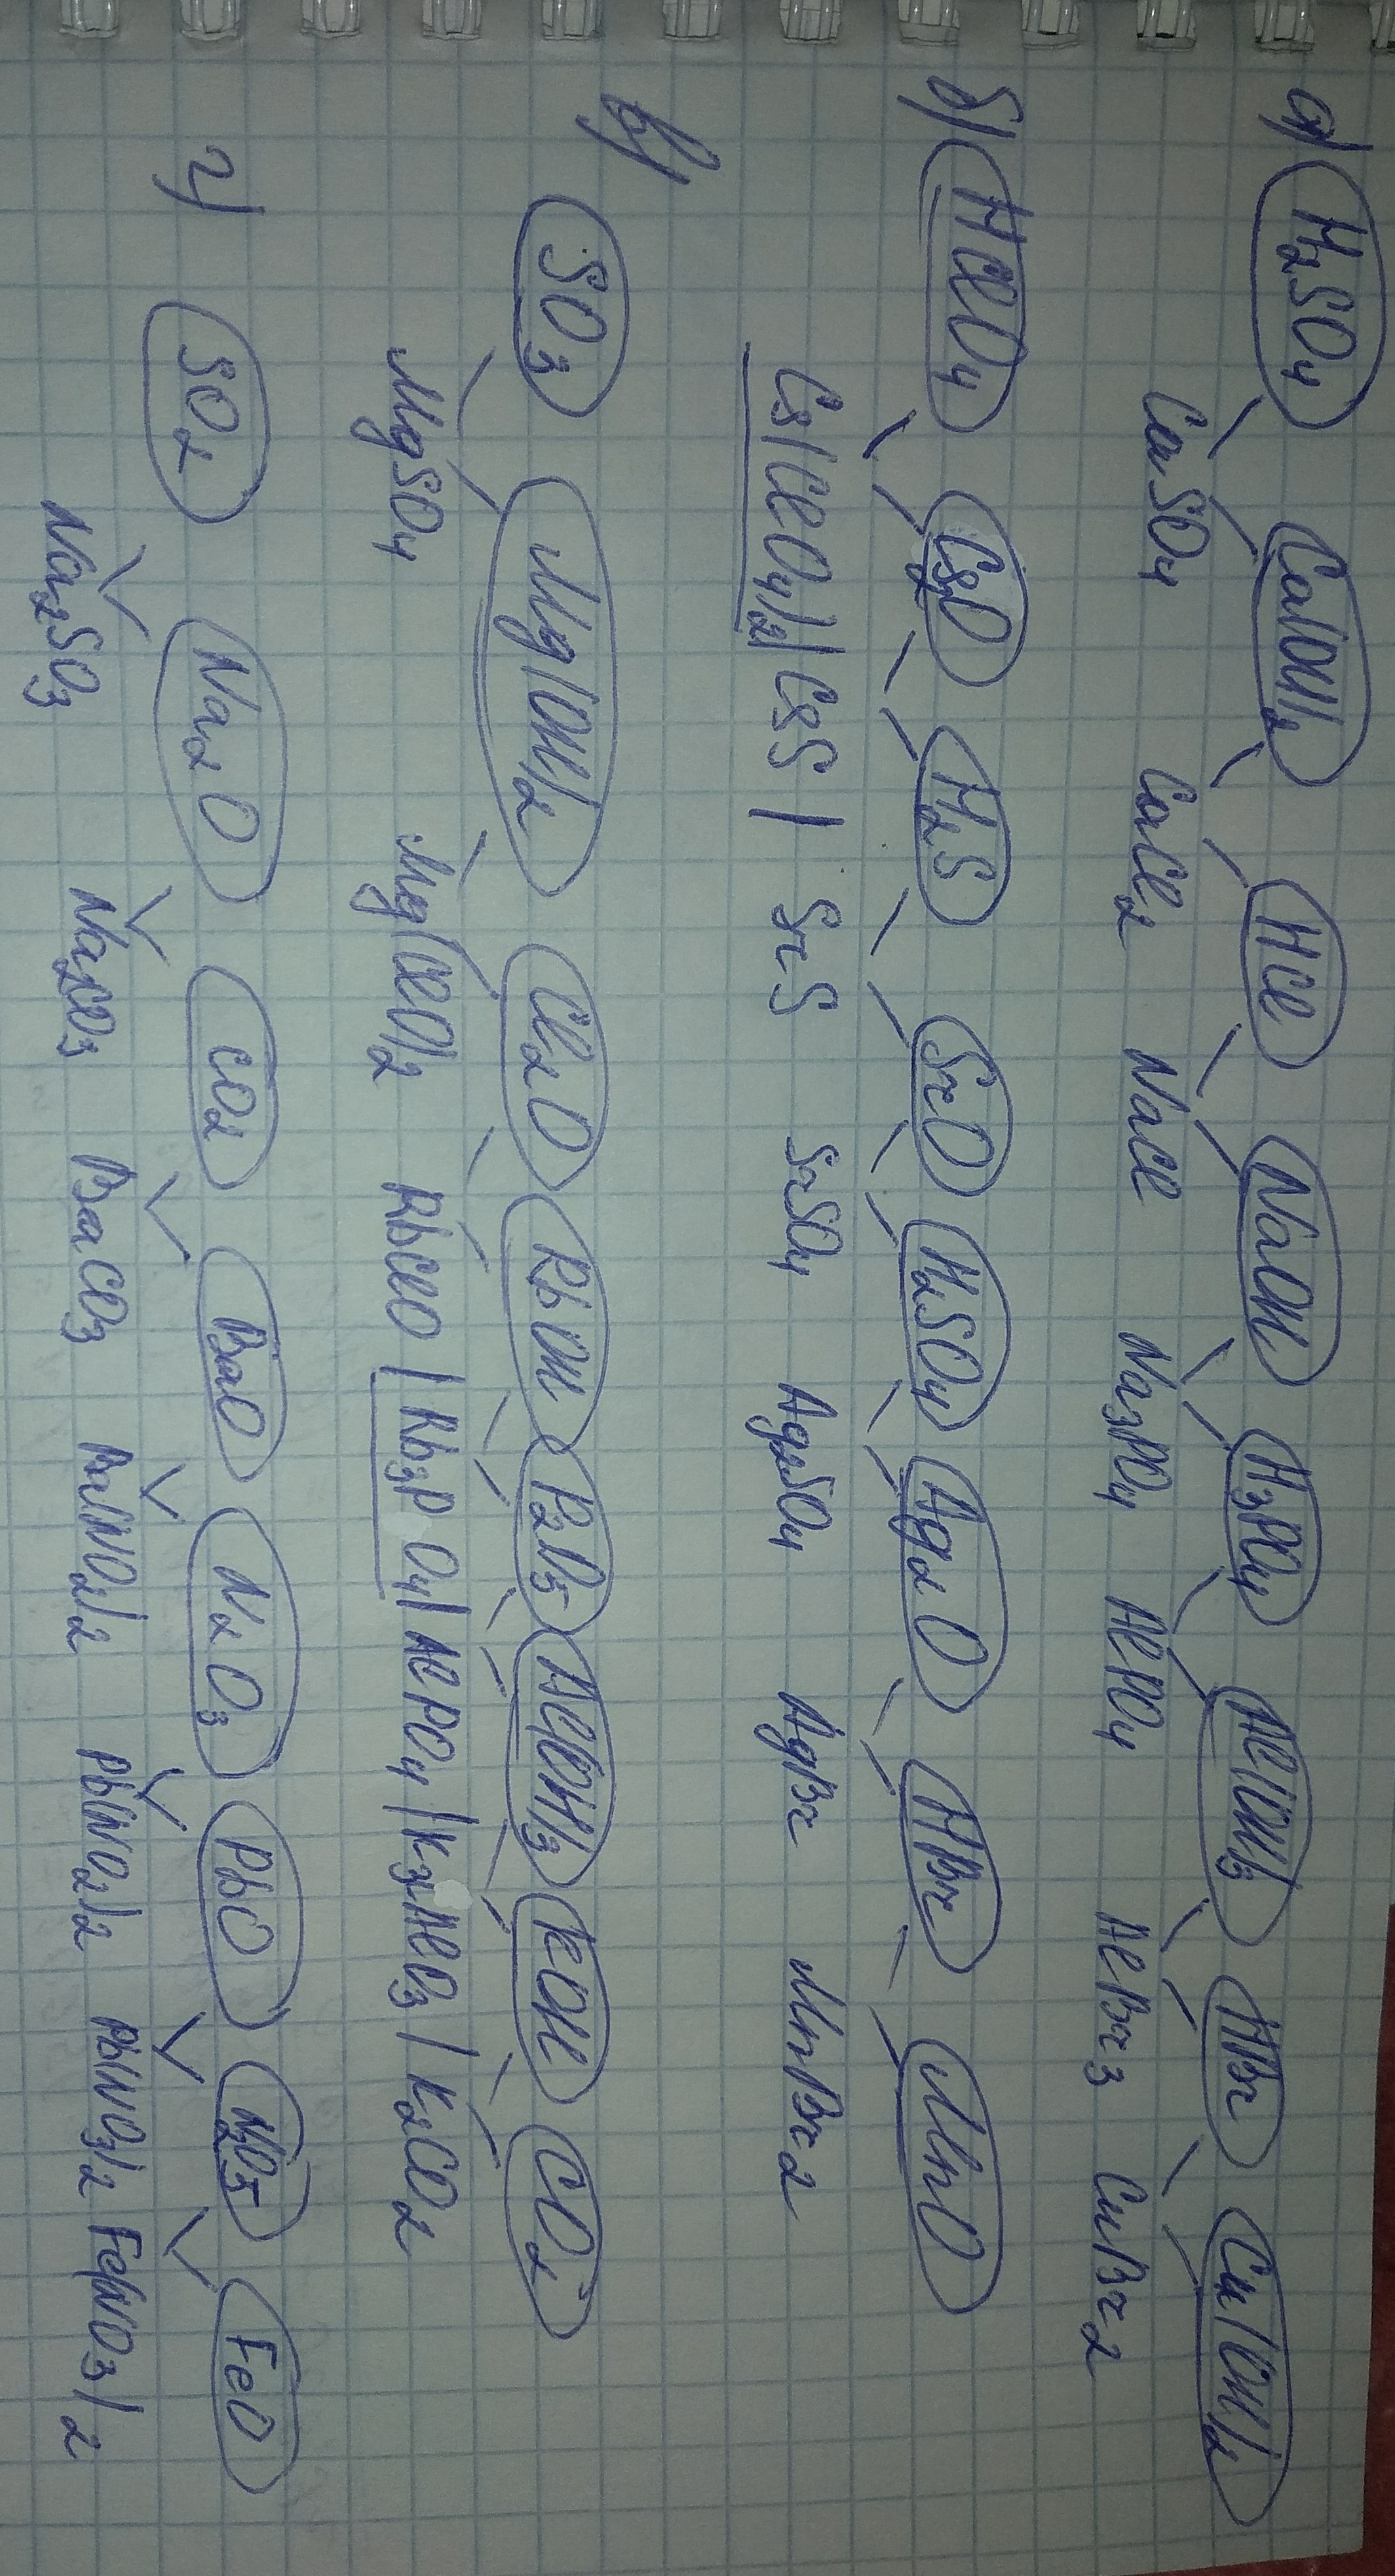 а) H₂SO₄ Ca(OH)₂ HCl NaOH H₃PO₄ Al(OH)₃ HBr Cu(OH)₂
CaSO₄ CaCl₂ NaCl Na₃PO₄ AlPO₄ AlBr₃ CuBr₂
б) HClO₄ Cs₂O H₂S SrO H₂SO₄ Ag₂O HBr MnO
Cs(ClO₄)₂ | CsS | SrS SrSO₄ Ag₂SO₄ AgBr MnBr₂
в) SO₃ Mg(OH)₂ Cl₂O RbOH P₂O₅ Al(OH)₃ KOH CO₂
MgSO₄ Mg(ClO)₂ RbClO | Rb₃PO₄ | AlPO₄ | K₃AlO₃ | K₂CO₂
г) SO₂ Na₂O CO₂ BaO N₂O₃ PbO N₂O₅ FeO
Na₂SO₃ Na₂CO₃ BaCO₃ Ba(NO₂)₂ Pb(NO₂)₂ Pb(NO₃)₂ Fe(NO₃)₂